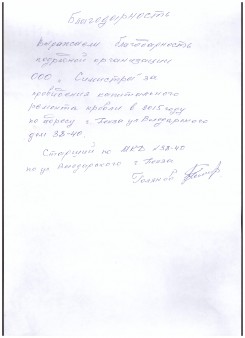 Благодарность
Выражаем благодарность
подрядной организации
ООО "
за
проведения капитального
ремонта кровли в 2015 году
по адресу г. Пенза ул Володарского
дом 38-40.
Старший по МКД №38-40
по ул Володарского г. Пенза